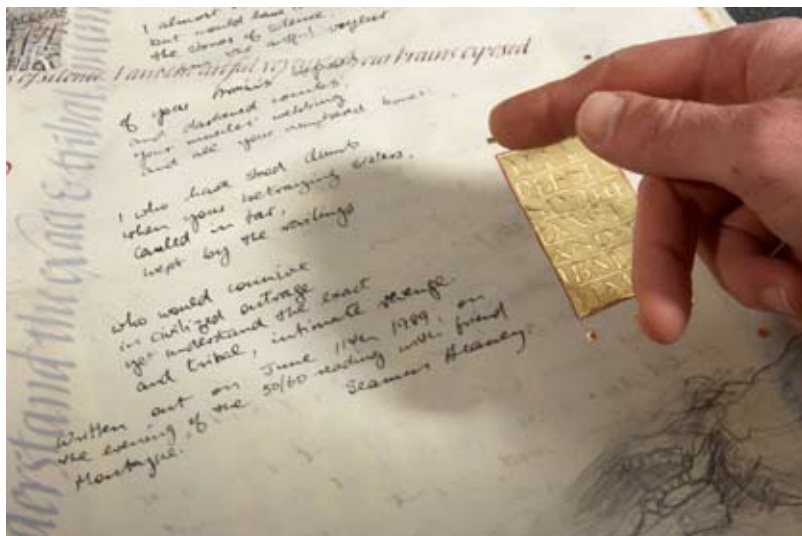 I almost
but would have
the stones of silence.
artful voyeur
s of silence. I am the artful voyeur of your brains exposed
of your brain's exposed
and darkened combs,
your muscles' webbing
and all your numbered bones:
I who have stood dumb
when your betraying sisters,
cauled in tar,
wept by the railings
who would connive
in civilized outrage
yet understand the exact
and tribal, intimate revenge.
Written out on June 11th 1989, on
the evening of the 50/60 reading with friend
Montague. Seamus Heaney.
derstand the exact & tribal